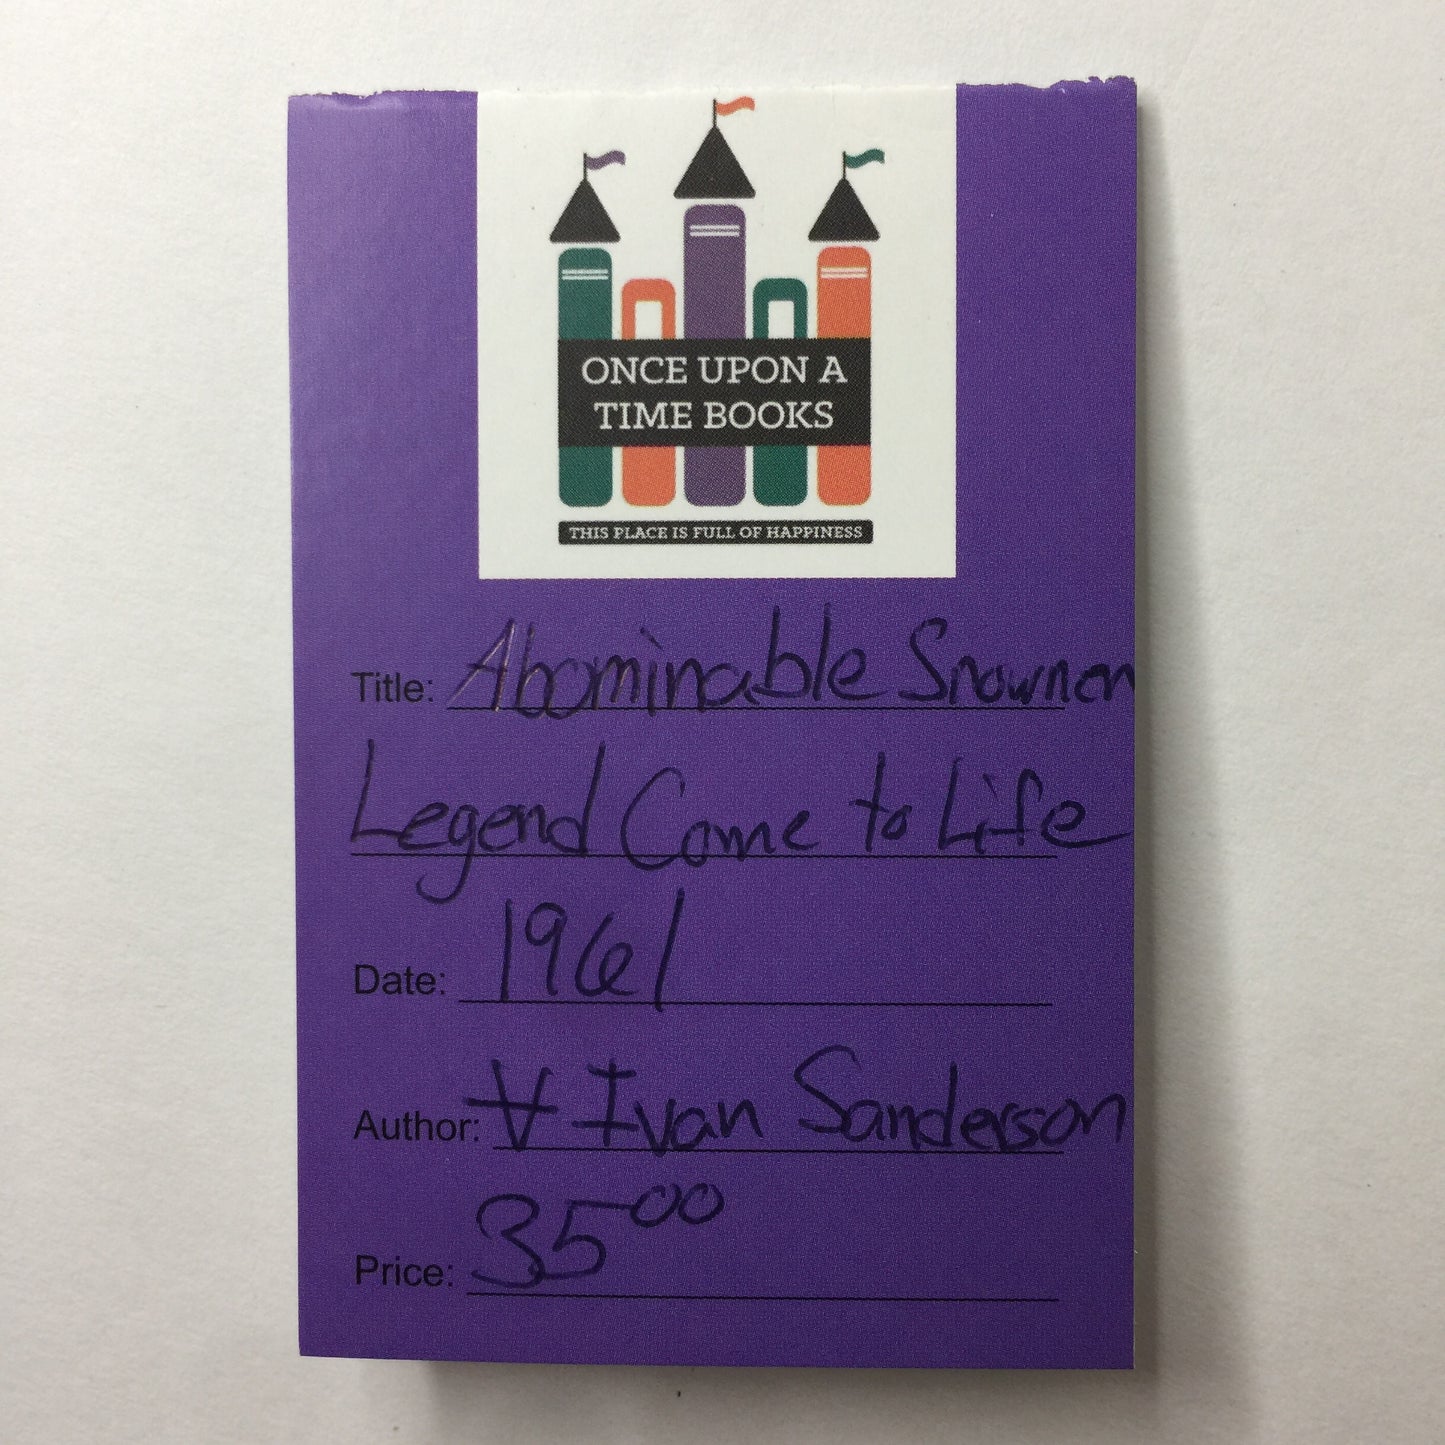 ONCE UPON A
TIME BOOKS
THIS PLACE IS FULL OF HAPPINESS
Title: Abominable Snowmen
Legend Come to Life
Date: 1961
Author: Ivan Sanderson
Price: 35⁰⁰